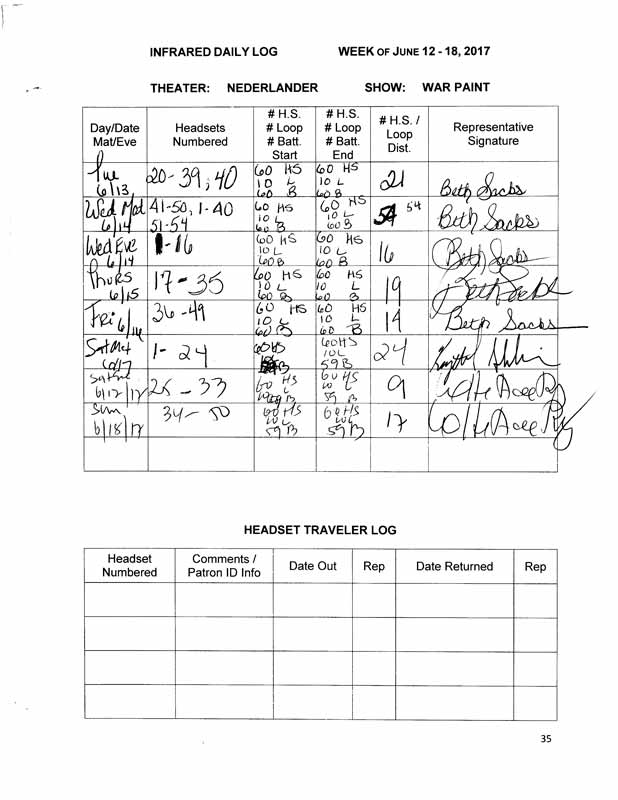 INFRARED DAILY LOG WEEK OF JUNE 12 - 18, 2017
THEATER: NEDERLANDER SHOW: WAR PAINT
Day/Date Mat/Eve
Headsets Numbered
# H.S. # Loop # Batt. Start
# H.S. # Loop # Batt. End
# H.S. / Loop Dist.
Representative Signature
Tue 6/13 20-39, 40 60 HS 10 L 60 B 60 HS 10 L 60 B 21 Beth Sachs
Wed Mat 6/14 41-50, 1-40 51-54 60 HS 10 L 60 B 60 HS 10 L 60 B 54 Beth Sachs
Wed Eve 6/14 1-16 60 HS 10 L 60 B 60 HS 10 L 60 B 16 Beth Sachs
Thurs 6/15 17-35 60 HS 10 L 60 B 60 HS 10 L 60 B 19 Beth Sachs
Fri 6/16 36-49 60 HS 10 L 60 B 60 HS 10 L 60 B 14 Beth Sachs
Sat Mat 6/17 1-24 60 HS 60 HS 10 L 59 B 24
6/17/17 25-33 60 HS 60 HS 10 59 B 9
Sun 6/18/17 34-50 60 HS 10 L 59 B 60 HS 10 L 59 B 17
HEADSET TRAVELER LOG
Headset Numbered
Comments / Patron ID Info
Date Out
Rep
Date Returned
Rep
35